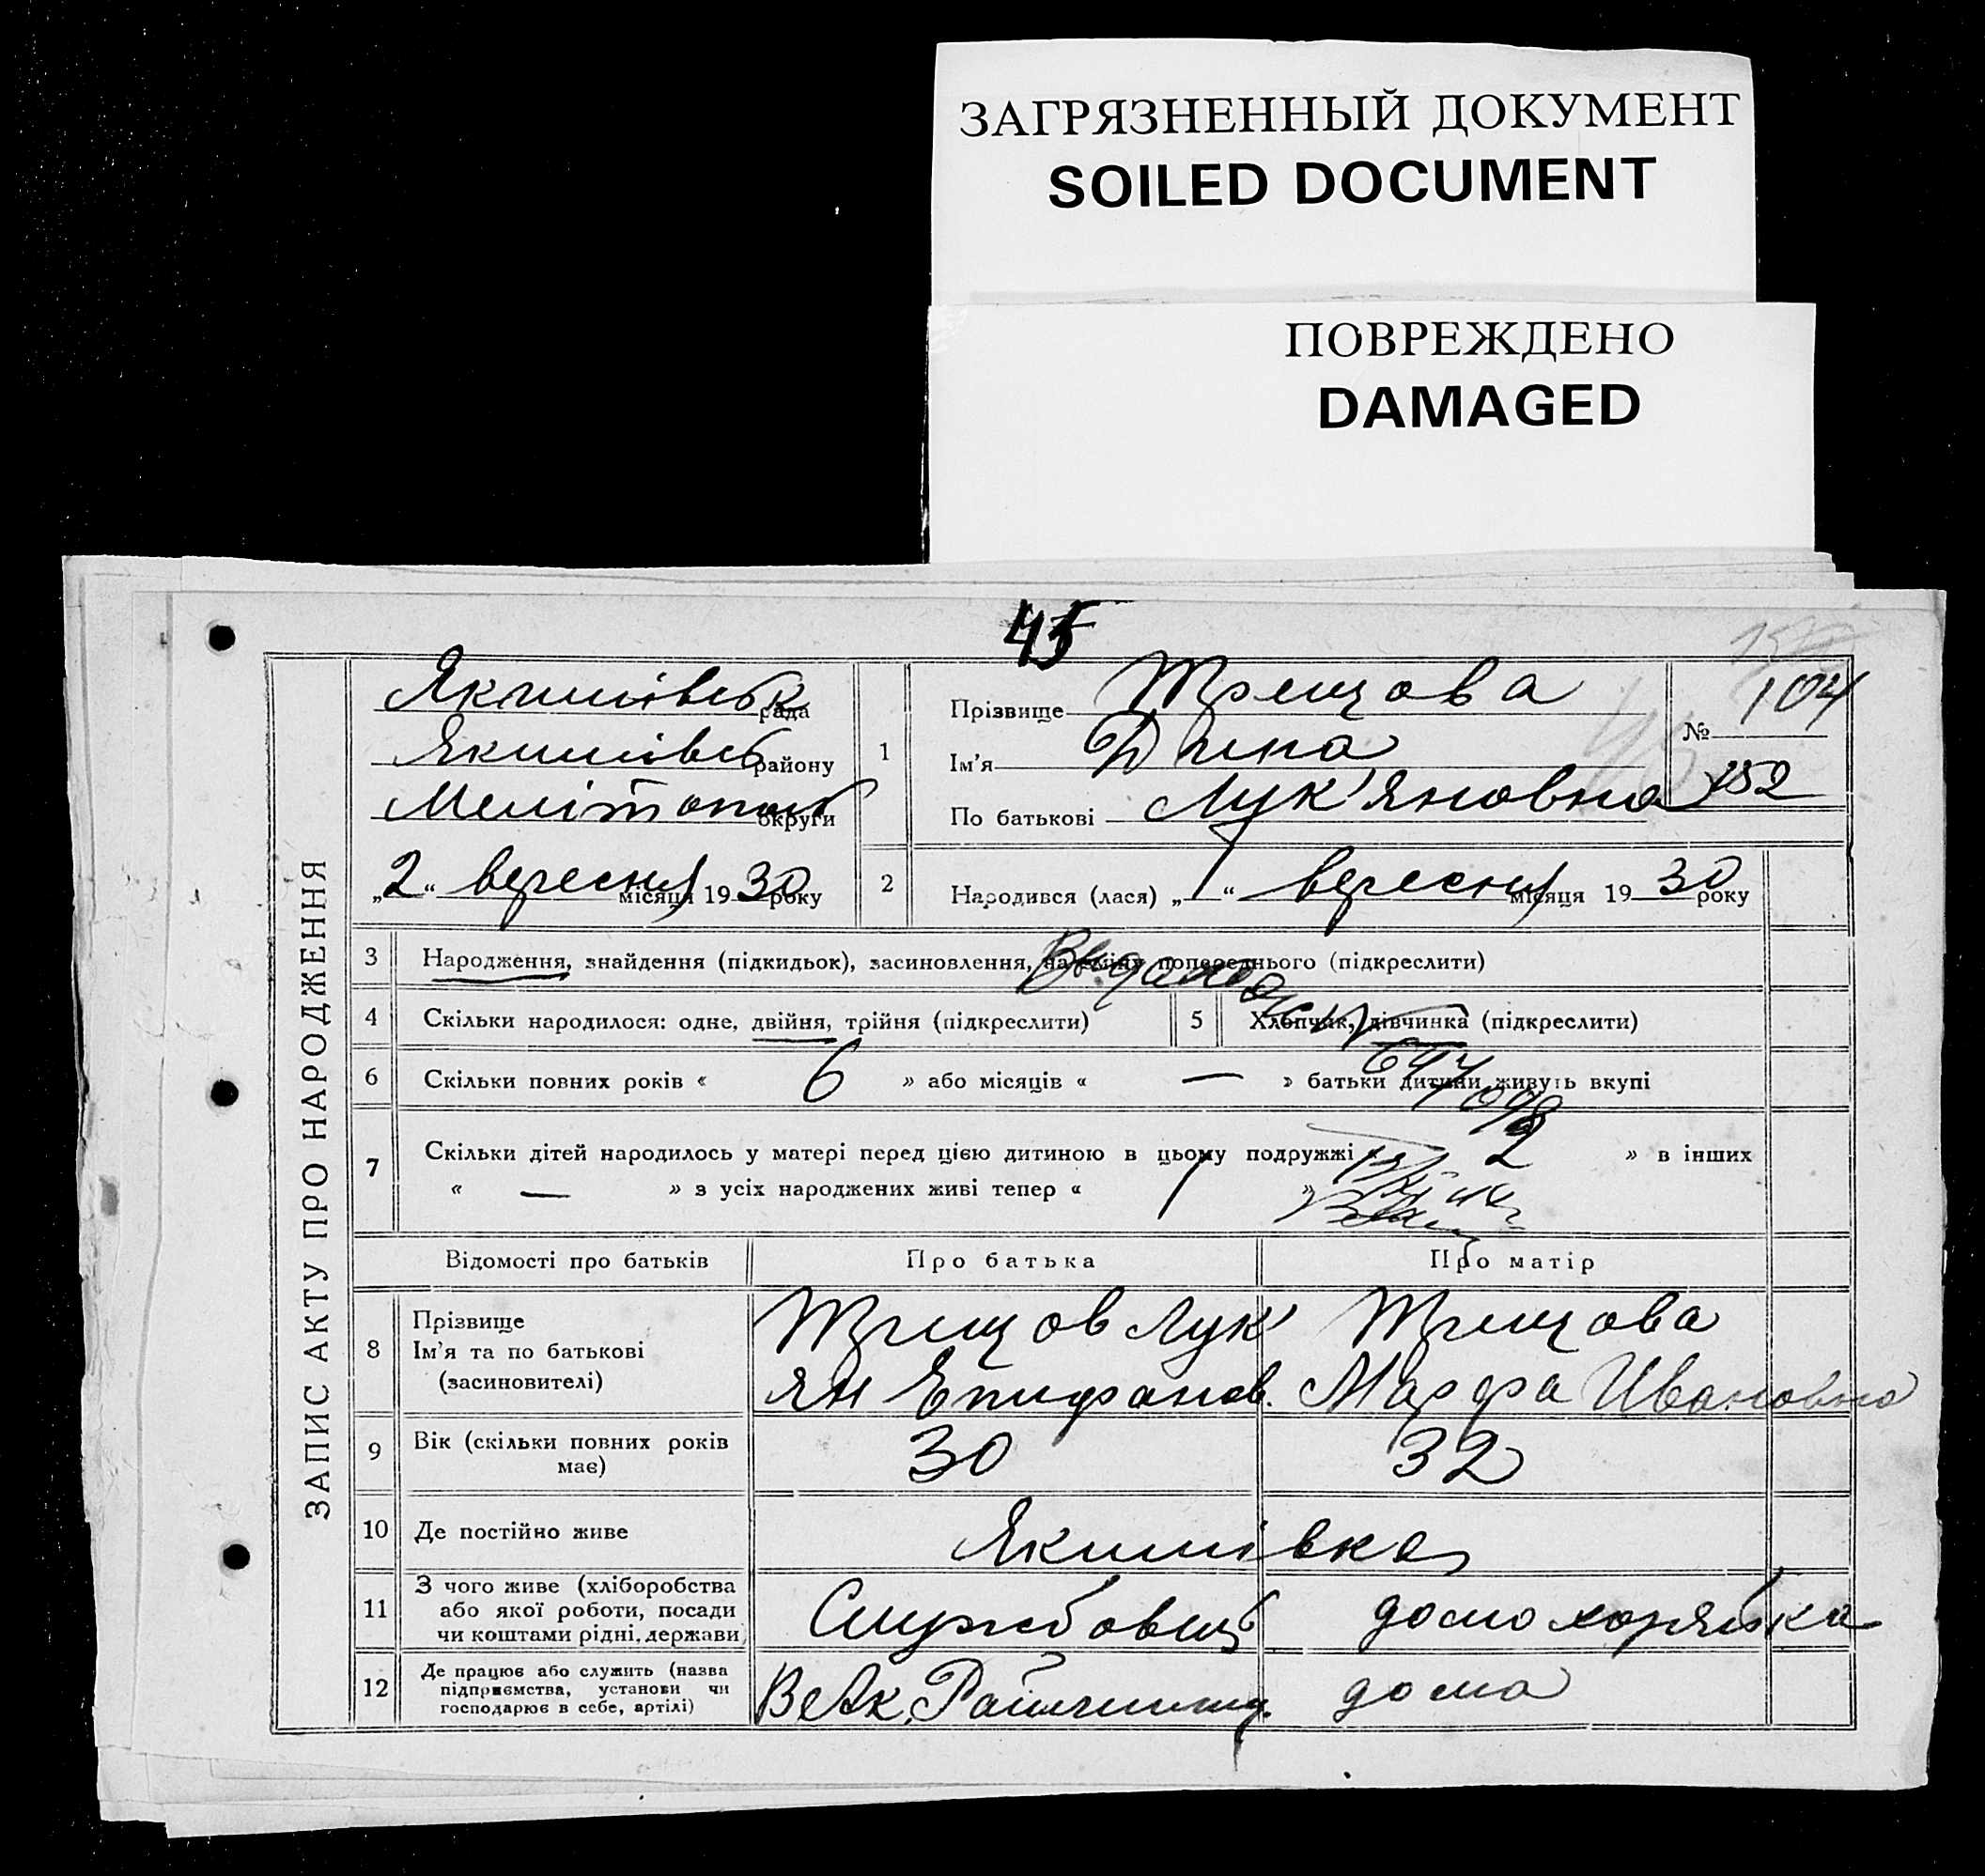 ЗАГРЯЗНЕННЫЙ ДОКУМЕНТ
SOILED DOCUMENT
ПОВРЕЖДЕНО
DAMAGED
45
ЗАПИС АКТУ ПРО НАРОДЖЕННЯ
Якимівськ рада
Якимівсь району
Мелітополь округи
„2“ вересня місяця 1930 року
1
Прізвище Трещова
Ім'я Діна
По батькові Лук'яновна
№ 104
152
2
Народився (лася) „1“ вересня місяця 1930 року
3 Народження, знайдення (підкидьок), засиновлення, на зміну попереднього (підкреслити)
4 Скільки народилося: одне, двійня, трійня (підкреслити)
5 Хлопчик, дівчинка (підкреслити)
6 Скільки повних років « 6 » або місяців « — » батьки дитини живуть вкупі
7 Скільки дітей народилось у матері перед цією дитиною в цьому подружжі « 2 » в інших
« — » з усіх народжених живі тепер « 1 »
Відомості про батьків Про батька Про матір
8 Прізвище
Ім'я та по батькові
(засиновителі)
Трещов Лук'
ян Епифанов.
Трещова
Марфа Ивановна
9 Вік (скільки повних років
має)
30
32
10 Де постійно живе
Якимівка
11 З чого живе (хліборобства
або якої роботи, посади
чи коштами рідні, держави)
Службовець
домохозяйка
12 Де працює або служить (назва
підприємства, установи чи
господарює в себе, артілі)
дома